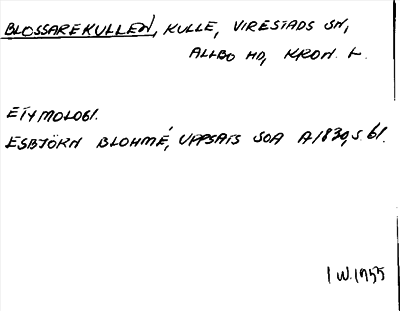 BLOSSAREKULLEN, KULLE, VIRESTADS SN,
ALLBO HD, KRON. L.
ETYMOLOGI.
ESBJÖRN BLOHMÉ, UPPSATS SOA A1830, S. 61.
I W. 1955